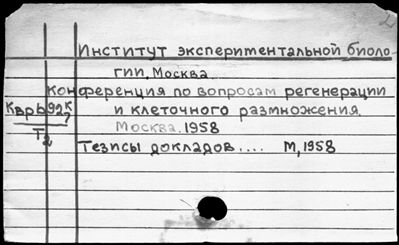 2
Институт экспериментальной биоло-
гии, Москва
Конференция по вопросам регенерации
и клеточного размножения.
Москва. 1958
Тезисы докладов.... М, 1958